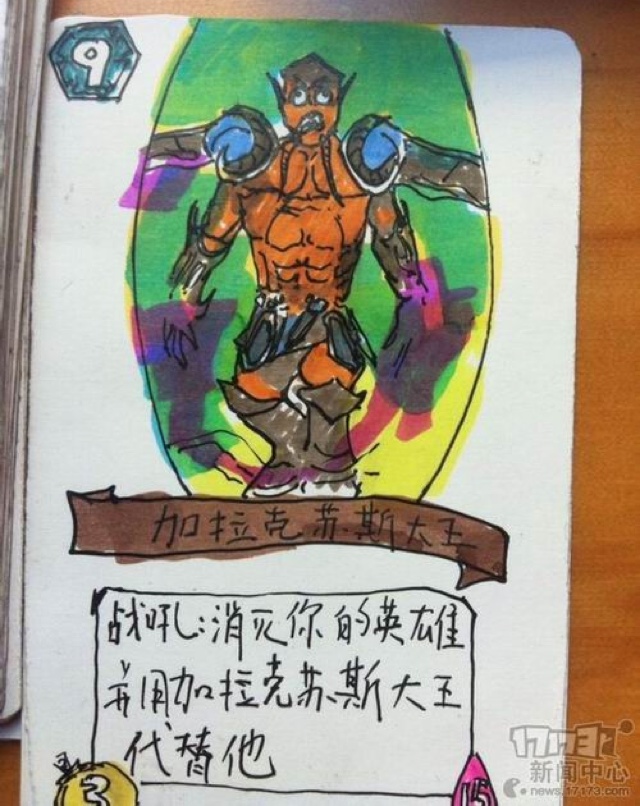 9
加拉克苏斯大王
战吼:消灭你的英雄
并用加拉克苏斯大王
代替他
3
15
17173
新闻中心
news.17173.com